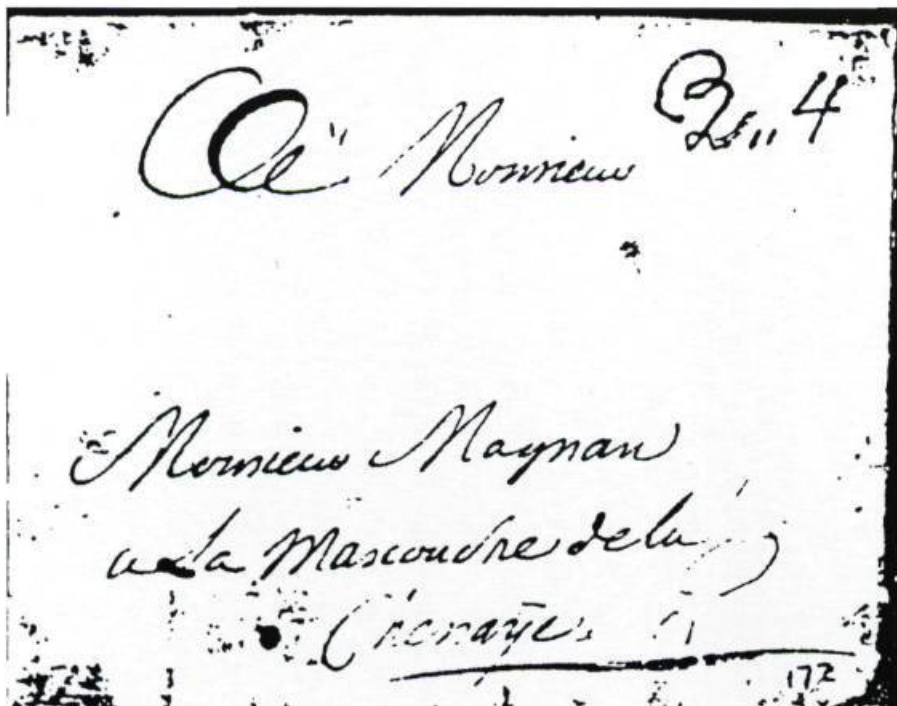 A Monsieur
Monsieur Magnan
a La Mascouche de la
Chenaÿe
172